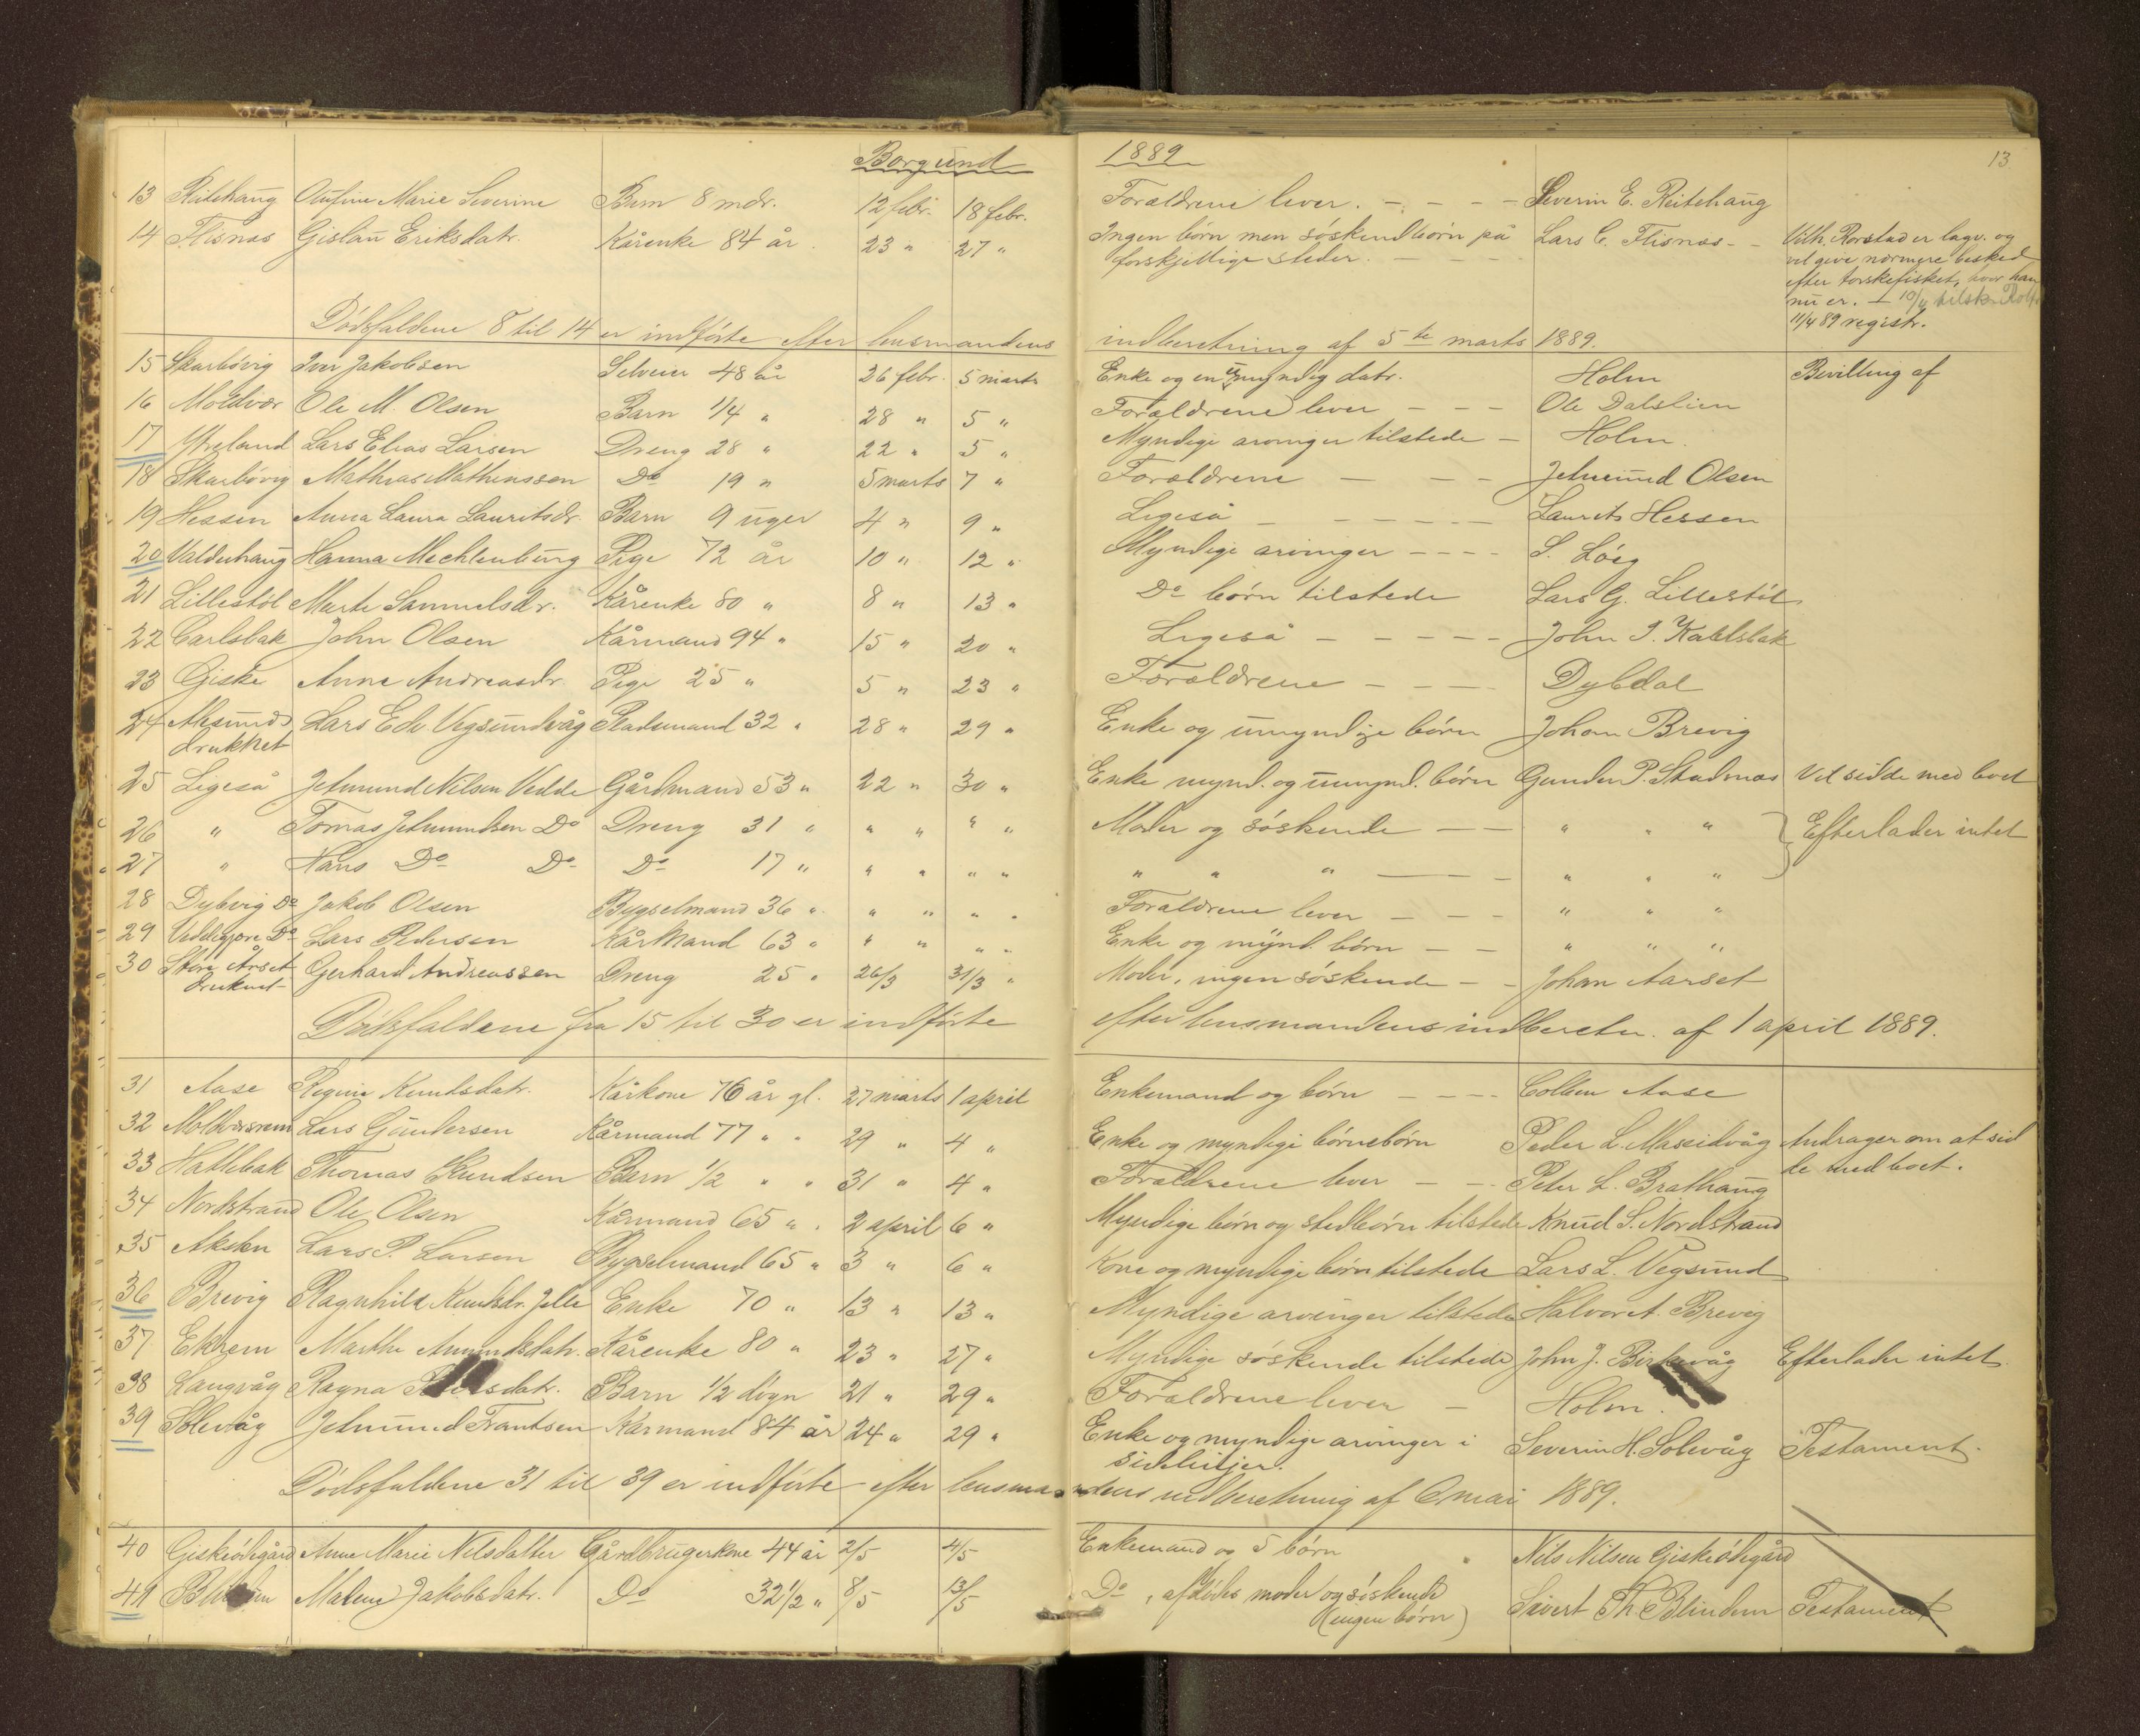 Borgund 1889 13
13 Reitehaug Olufine Marie Severine Barn 8 mdr. 12 febr. 18 febr. Forældrene lever. - - - Severin E. Reitehaug
14 Flisnæs Gislau Eriksdatr. Kårenke 84 år 23 " 27 " Ingen børn men søskendbørn på Lars C. Flisnæs - - Vilh. Rorstad er lagv. og
forskjellige steder. - - - vil give nærmere besked
efter torskefisket, hvor han
nu er. - 10/4 tilskr.
11/4 89 registr.
Dødsfaldene 8 til 14 er indførte efter lensmandens indberetning af 5te marts 1889.
15 Skarbøvig Iver Jakobsen Selveier 48 år 26 febr. 5 marts Enke og en umyndig datr. Holm Bevilling af
16 Moldvær Ole M. Olsen Barn 1/4 " 28 " 5 " Forældrene lever - - - Ole Dalslien
17 Ytreland Lars Elias Larsen Dreng 28 " 22 " 5 " Myndige arvinger tilstede - Holm.
18 Skarbøvig Mathias Mathiassen Do 19 " 5 marts 7 " Forældrene - - - Jetmund Olsen
19 Hessen Anna Laura Lauritsdr. Barn 9 uger 4 " 9 " Ligeså - - - - - Laurits Hessen
20 Valderhaug Hanna Mechlenburg Pige 72 år 10 " 12 " Myndige arvinger - - - - S. Løeg
21 Lillestøl Marte Samuelsdr. Kårenke 80 " 8 " 13 " Do børn tilstede Lars G. Lillestøl
22 Carlsbak John Olsen Kårmand 94 " 15 " 20 " Ligeså - - - - - John J. Kallsbak
23 Giske Anne Andreasdr. Pige 25 " 5 " 23 " Forældrene - - - - Dybdal
24 Alesund Lars Edv. Vegsundvåg Pladsmand 32 " 28 " 29 " Enke og umyndige børn Johan Brevig
druknet
25 Ligeså Jetmund Nilsen Vedde Gårdmand 53 " 22 " 30 " Enke mynd. og umynd. børn Gunder P. Stadsnæs Vil sidde med boet
26 " Tomas Jetmundsen Do Dreng 31 " " " " " Moder og søskende - - " " " } Efterlader intet
27 " Hans Do Do Do 17 " " " " " " " " - - - " " "
28 Dybvig Do Jakob Olsen Bygselmand 36 " " " " " Forældrene lever - - - " " "
29 Veddegjære Do Lars Pedersen Kårmand 63 " " " " " Enke og mynd. børn - - " " "
30 Store Årset Gerhard Andreassen Dreng 25 " 26/3 31/3 " Moder, ingen søskende - - Johan Aarset
druknet
Dødsfaldene fra 15 til 30 er indførte efter lensmandens indberetn. af 1 april 1889.
31 Aase Regine Knutsdatr. Kårkone 76 år gl. 27 marts 1 april Enkemand og børn - - - - Aase
32 Moldværsrem Lars Gundersen Kårmand 77 " " 29 " 4 " Enke og myndige børnebørn Peder L. Mæseidvåg Andrager om at sid
de med boet.
33 Hatlebak Thomas Knudsen Barn 1/2 " " 31 " 4 " Forældrene lever - - - Peter L. Brathaug
34 Nordstrand Ole Olsen Kårmand 65 " " 2 april 6 " Myndige børn og stedbørn tilstede Knud S. Nordstrand
35 Akslen Lars P. Larsen Bygselmand 65 " 3 " 6 " Kone og myndige børn tilstede Lars L. Vegsund
36 Brevig Ragnhild Knutsdr. Jelle Enke 70 " 13 " 13 " Myndige arvinger tilstede Halvor A. Brevig
37 Ekrem Marthe Amundsdatr. Kårenke 80 " 23 " 27 " Myndige søskende tilstede John J. Birkevåg Efterlader intet
38 Langvåg Ragna Barn 1/2 døgn 21 " 29 " Forældrene lever - Holm.
39 Solevåg Jetmund Frantsen Kårmand 84 år 24 " 29 " Enke og myndige arvinger i Severin H. Solevåg Testament.
sidelinjer.
Dødsfaldene 31 til 39 er indførte efter lensmandens indberetning af 6 mai 1889.
40 Giskeødegård Anne Marie Nilsdatter Gårdbrugerkone 44 år 2/5 4/5 Enkemand og 5 børn Nils Nilsen Giskeødegård
41 Blindem Malene Jakobsdatr. Do 32 1/2 " 8/5 13/5 Do, afdødes moder og søskende Sivert Th. Blindem Testament
(ingen børn)